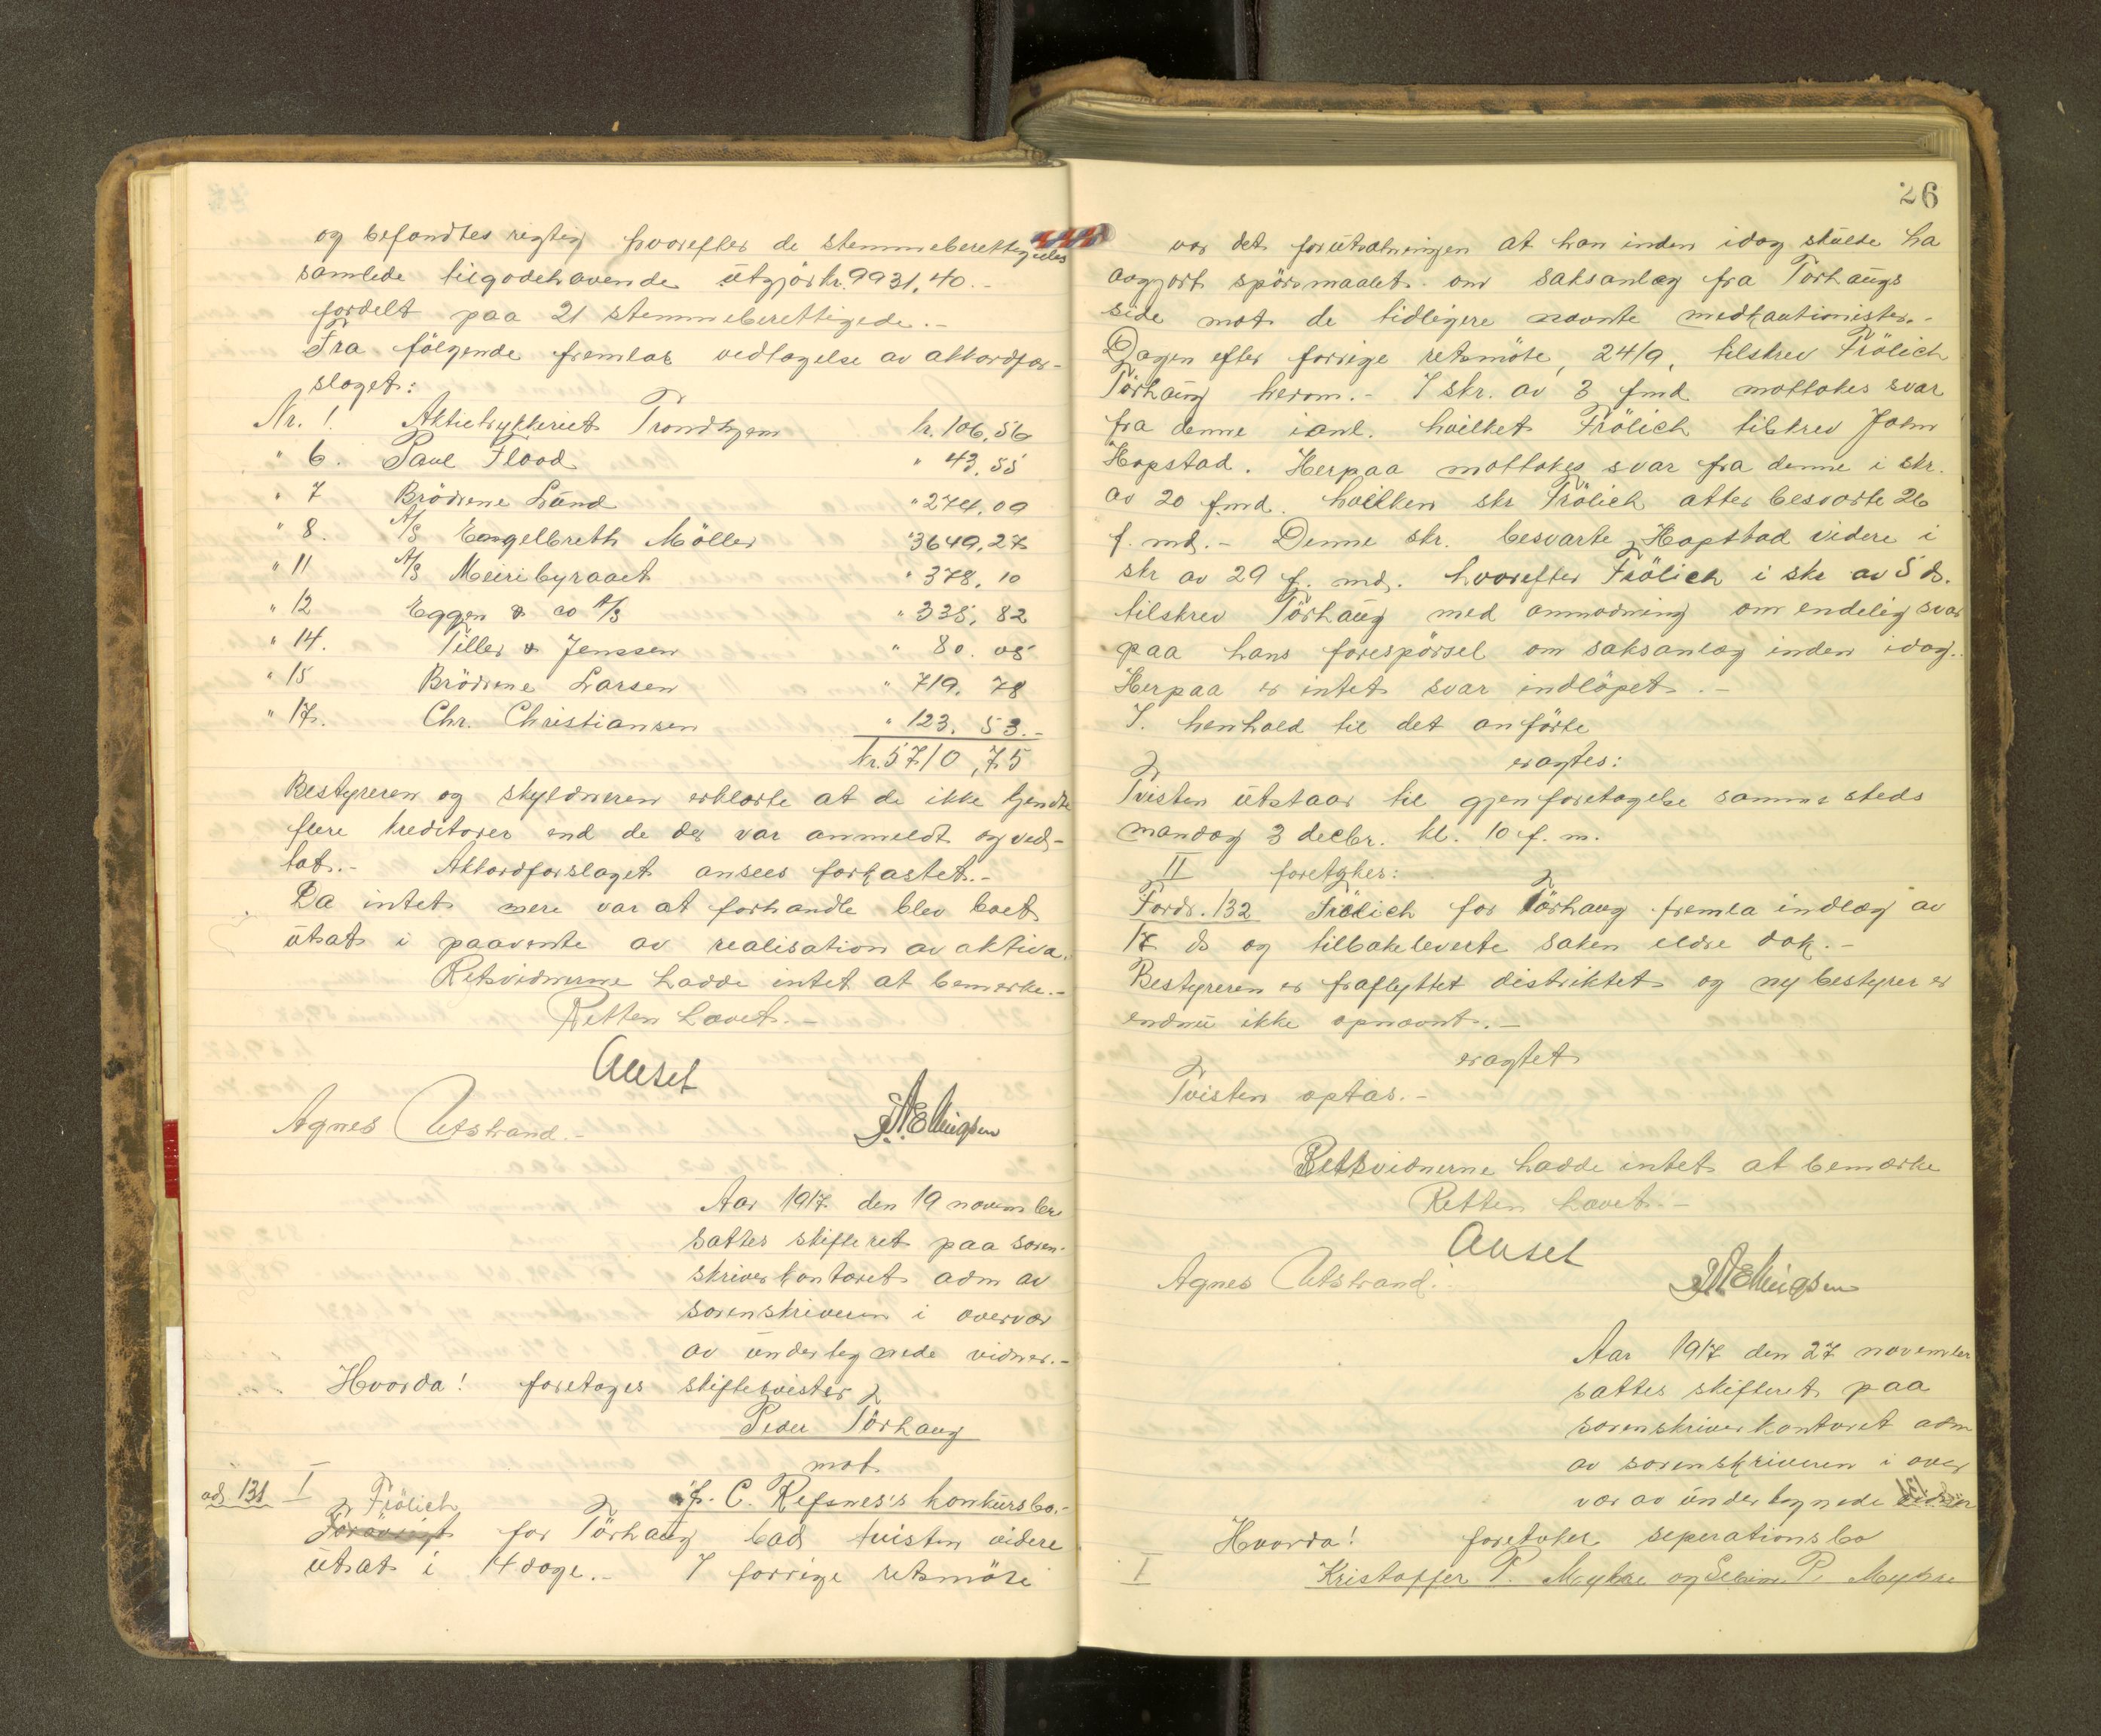 og befandtes regtig hvorefter de stemmeberettigedes
samlede tilgodehavende utgjør kr. 9931,40.-
fordelt paa 21 stemmeberettigede.-
Fra følgende fremlaa vedtagelse av akkordfor-
slaget:
Nr. 1. Aktietrykkeriet Trondhjem kr. 106,56
" 6. Paul Flood " 43,55
" 7 Brödrene Lund " 274,09
" 8. A/S Engelbreth Möller " 3649,27
" 11 A/S Meieribyraaet " 378,10
" 12 Eggen & co A/S " 335,82
" 14. Tiller & Jenssen " 80.05
" 15 Brödrene Larsen " 719.78
" 17. Chr. Christiansen " 123.53.-
kr. 5710,75
Bestyreren og skyldneren erklærte at de ikke kjendte
flere kreditorer end de der var anmeldt og ved-
tat.- Akkordforslaget ansees forkastet.-
Da intet mere var at forhandle blev boet
utsat i paavente av realisation av aktiva.
Retsvidnerne hadde intet at bemerke.-
Retten hævet.-
Ausel
Agnes Utstrand.- Ellingsen
Aar 1917 den 19 november
sattes skifteret paa soren-
skriverkontoret adm av
sorenskriveren i overvær
av undertegnede vidner.-
Hvorda! foretages skiftetvister
Peder Törhaug
mot
ad 131 I J. C. Refsnes's konkursbo.-
Frölich
for Törhaug bad tvisten videre
utsat i 14 dage.- I forrige retsmöte
26
var det forutsætningen at han inden idag skulde ha
avgjort spörsmaalet om saksanlæg fra Törhaugs
side mot de tidligere nævnte medkautionister.-
Dagen efter forrige retsmöte, 24/9, tilskrev Frölich
Törhaug herom.- I skr. av 3 f.md. mottokes svar
fra denne i anl. hvilket Frölich tilskrev John
Hopstad. Herpaa mottokes svar fra denne i skr.
av 20 f.md. hvilken skr Frölich atter besvarte 26
f. md.- Denne skr. besvarte Hopstad videre i
skr av 29 f. md. hvorefter Frölich i skr av 5 ds.
tilskrev Törhaug med anmodning om endelig svar
paa hans forespörsel om saksanlæg inden idag.
Herpaa er intet svar indlöpet.-
I henhold til det anförte
eragtes:
Tvisten utstaar til gjenforetagelse samme steds
mandag 3 decbr. kl. 10 f. m.
II foretokes:
Fordr. 132 Frölich for Törhaug fremla indlæg av
17 ds og tilbakeleverte saken eldre dok.-
Bestyreren er fraflyttet distriktet og ny bestyrer er
endnu ikke opnævnt.-
eragtet
Tvisten optas.-
Retsvidnerne hadde intet at bemærke
Retten hævet.-
Ausel
Agnes Utstrand. Ellingsen
Aar 1917 den 27 november
sattes skifteret paa
sorenskriverkontoret adm
av sorenskriveren i over
vær av undertegnede vidner
Hvorda! foretokes seperationsbo
I Kristoffer P. Mykse og P. Mykse